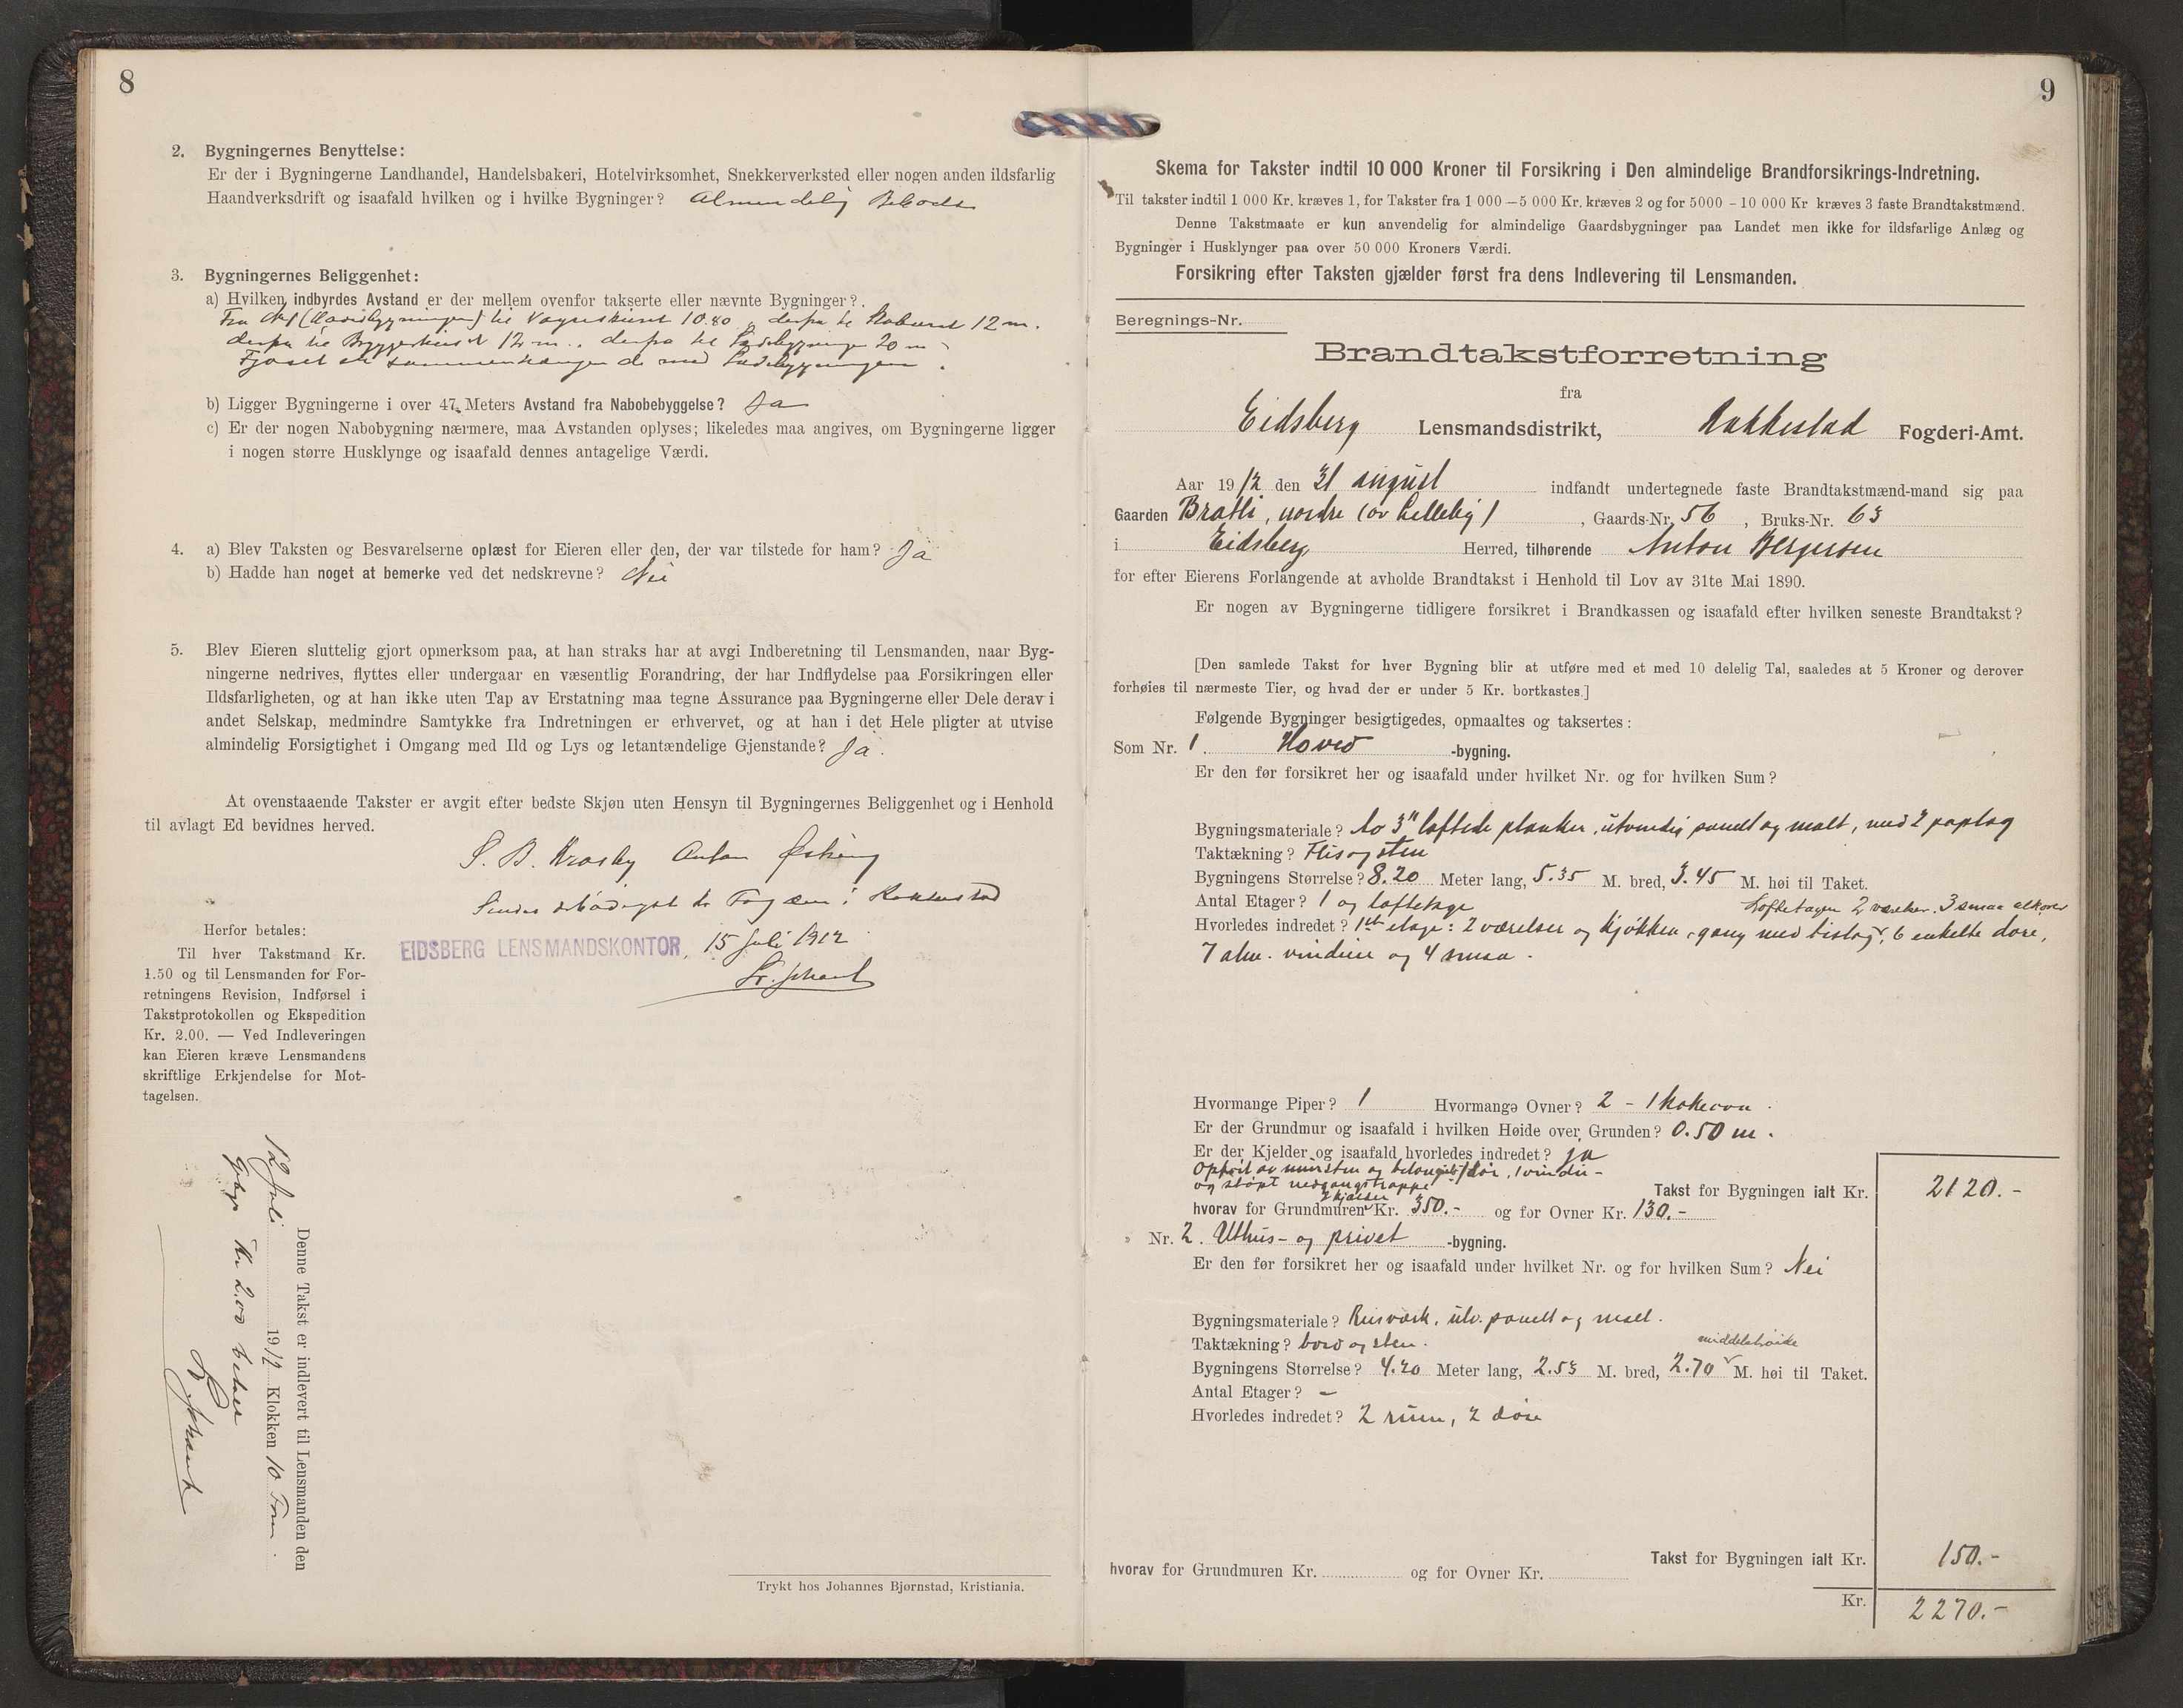 8
2. Bygningernes Benyttelse:
Er der i Bygningerne Landhandel, Handelsbakeri, Hotelvirksomhet, Snekkerverksted eller nogen anden ildsfarlig
Haandverksdrift og isaafald hvilken og i hvilke Bygninger? Almindelig
3. Bygningernes Beliggenhet:
a) Hvilken indbyrdes Avstand er der mellem ovenfor takserte eller nævnte Bygninger?
Fra No 1 (Hovedbygningen) til 10.80, derfra til Staburet 12 m.
derfra til Bryggerhuset 12 m., derfra til Ladebygningen 20 m
Fjøset er sammenhængende med Ladebygningen.
b) Ligger Bygningerne i over 47 Meters Avstand fra Nabobebyggelse? Ja
c) Er der nogen Nabobygning nærmere, maa Avstanden oplyses; likeledes maa angives, om Bygningerne ligger
i nogen større Husklynge og isaafald dennes antagelige Værdi.
4. a) Blev Taksten og Besvarelserne oplæst for Eieren eller den, der var tilstede for ham? Ja
b) Hadde han noget at bemerke ved det nedskrevne? Nei
5. Blev Eieren sluttelig gjort opmerksom paa, at han straks har at avgi Indberetning til Lensmanden, naar Byg-
ningerne nedrives, flyttes eller undergaar en væsentlig Forandring, der har Indflydelse paa Forsikringen eller
Ildsfarligheten, og at han ikke uten Tap av Erstatning maa tegne Assurance paa Bygningerne eller Dele derav i
andet Selskap, medmindre Samtykke fra Indretningen er erhvervet, og at han i det Hele pligter at utvise
almindelig Forsigtighet i Omgang med Ild og Lys og letantændelige Gjenstande? Ja.
At ovenstaaende Takster er avgit efter bedste Skjøn uten Hensyn til Bygningernes Beliggenhet og i Henhold
til avlagt Ed bevidnes herved.
S. B. Krosby Anton
Sendes til Fogden i Rakkestad
EIDSBERG LENSMANDSKONTOR, 15 Juli 1912
Herfor betales:
Til hver Takstmand Kr.
1.50 og til Lensmanden for For-
retningens Revision, Indførsel i
Takstprotokollen og Ekspedition
Kr. 2.00. — Ved Indleveringen
kan Eieren kræve Lensmandens
skriftlige Erkjendelse for Mot-
tagelsen.
Denne Takst er indlevert til Lensmanden den
12 Juli 1912 Klokken 10 Form.
Gebyr Kr 2.00 betalt
Trykt hos Johannes Bjørnstad, Kristiania.
9
Skema for Takster indtil 10 000 Kroner til Forsikring i Den almindelige Brandforsikrings-Indretning.
Til takster indtil 1 000 Kr. kræves 1, for Takster fra 1 000 — 5 000 Kr. kræves 2 og for 5000 - 10 000 Kr kræves 3 faste Brandtakstmænd.
Denne Takstmaate er kun anvendelig for almindelige Gaardsbygninger paa Landet men ikke for ildsfarlige Anlæg og
Bygninger i Husklynger paa over 50 000 Kroners Værdi.
Forsikring efter Taksten gjælder først fra dens Indlevering til Lensmanden.
Beregnings-Nr.
Brandtakstforretning
fra
Eidsberg Lensmandsdistrikt, Rakkestad Fogderi-Amt.
Aar 1912 den 31 august indfandt undertegnede faste Brandtakstmænd-mand sig paa
Gaarden Bratli, nordre (av Lekkebig), Gaards-Nr. 56, Bruks-Nr. 63
i Eidsberg Herred, tilhørende Anton Bergersen
for efter Eierens Forlangende at avholde Brandtakst i Henhold til Lov av 31te Mai 1890.
Er nogen av Bygningerne tidligere forsikret i Brandkassen og isaafald efter hvilken seneste Brandtakst?
[Den samlede Takst for hver Bygning blir at utføre med et med 10 delelig Tal, saaledes at 5 Kroner og derover
forhøies til nærmeste Tier, og hvad der er under 5 Kr. bortkastes.]
Følgende Bygninger besigtigedes, opmaaltes og taksertes:
Som Nr. 1. Hoved -bygning.
Er den før forsikret her og isaafald under hvilket Nr. og for hvilken Sum?
Bygningsmateriale? Av 3" laftede planker, utvendig panelt og malt, med 2 paplag
Taktækning? Flis og sten
Bygningens Størrelse? 8.20 Meter lang, 5.35 M. bred, 3.45 M. høi til Taket.
Antal Etager? 1 og loftetage
Loftetagen 2 værelser. 3 smaa alkover
Hvorledes indredet? 1ste etage: 2 værelser og kjøkken, gang med bislag, 6 enkelte døre,
7 alm. vinduer og 4 smaa.
Hvormange Piper? 1 Hvormange Ovner? 2 - 1 kokeovn.
Er der Grundmur og isaafald i hvilken Høide over Grunden? 0.50 m.
Er der Kjelder og isaafald hvorledes indredet? ja
Opført av mursten og betongulv 1 dør, 1 vindu -
og støpt nedgangstrappe Takst for Bygningen ialt Kr. 2120.-
hvorav for Grundmuren og kjælder Kr. 350.- og for Ovner Kr. 130.-
Nr. 2. Uthus- og privet -bygning.
Er den før forsikret her og isaafald under hvilket Nr. og for hvilken Sum? Nei
Bygningsmateriale? Reisverk, utv. panelt og malt.
Taktækning? bord og sten.
middelshøide
Bygningens Størrelse? 4.20 Meter lang, 2.53 M. bred, 2.70 M. høi til Taket.
Antal Etager? –
Hvorledes indredet? 2 rum, 2 døre
Takst for Bygningen ialt Kr. 150.-
hvorav for Grundmuren Kr. og for Ovner Kr.
Kr. 2270.-